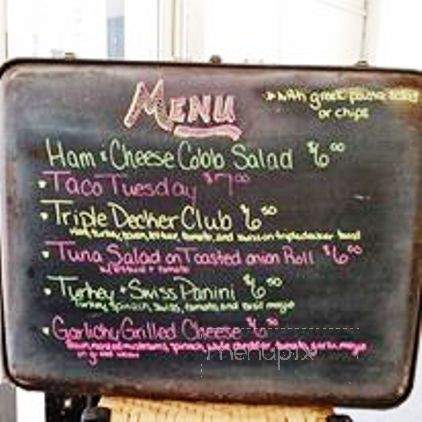 MENU
with greek pasta salad
or chips
Ham & Cheese Cobb Salad $6.00
• Taco Tuesday $7.00
• Triple Decker Club $6.50
turkey, bacon, lettuce, tomato, and swiss on triple decker toast
• Tuna Salad on Toasted onion Roll $6.00
w/ lettuce + tomato
• Turkey + Swiss Panini $6.50
turkey, spinach, swiss, tomato, and basil mayo
• Garlicky Grilled Cheese $6.50
mushrooms, spinach, white cheddar, tomato, garlic mayo
on
menupix